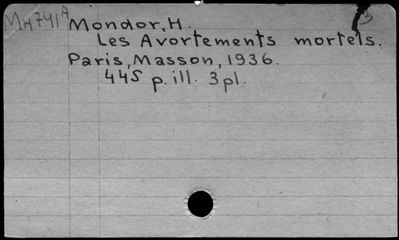 Mondor, H.
Les Avortements mortels.
Paris, Masson, 1936.
445 p. ill. 3 pl.